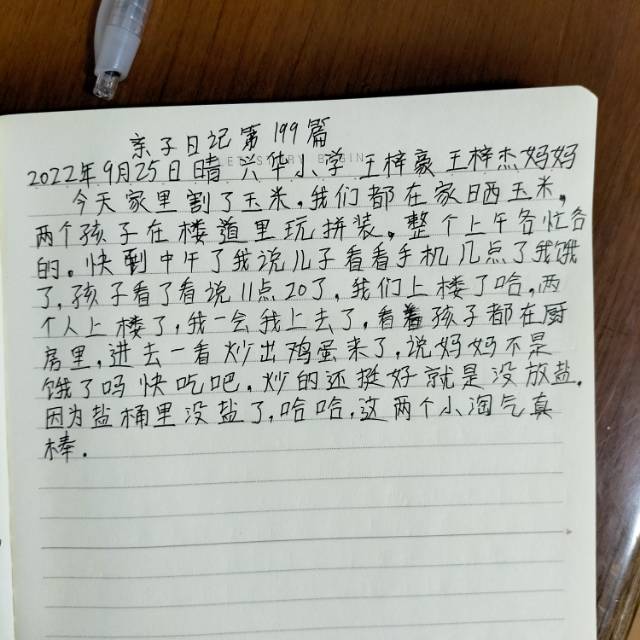 亲子日记第199篇
2022年9月25日晴 兴华小学 王梓豪 王梓杰妈妈
今天家里割了玉米,我们都在家晒玉米,
两个孩子在楼道里玩拼装,整个上午各忙各
的。快到中午了我说儿子看看手机几点了我饿
了,孩子看了看说11点20了,我们上楼了哈,两
个人上楼了,我一会我上去了,看着孩子都在厨
房里,进去一看炒出鸡蛋来了,说妈妈不是
饿了吗快吃吧,炒的还挺好就是没放盐.
因为盐桶里没盐了,哈哈,这两个小淘气真
棒.